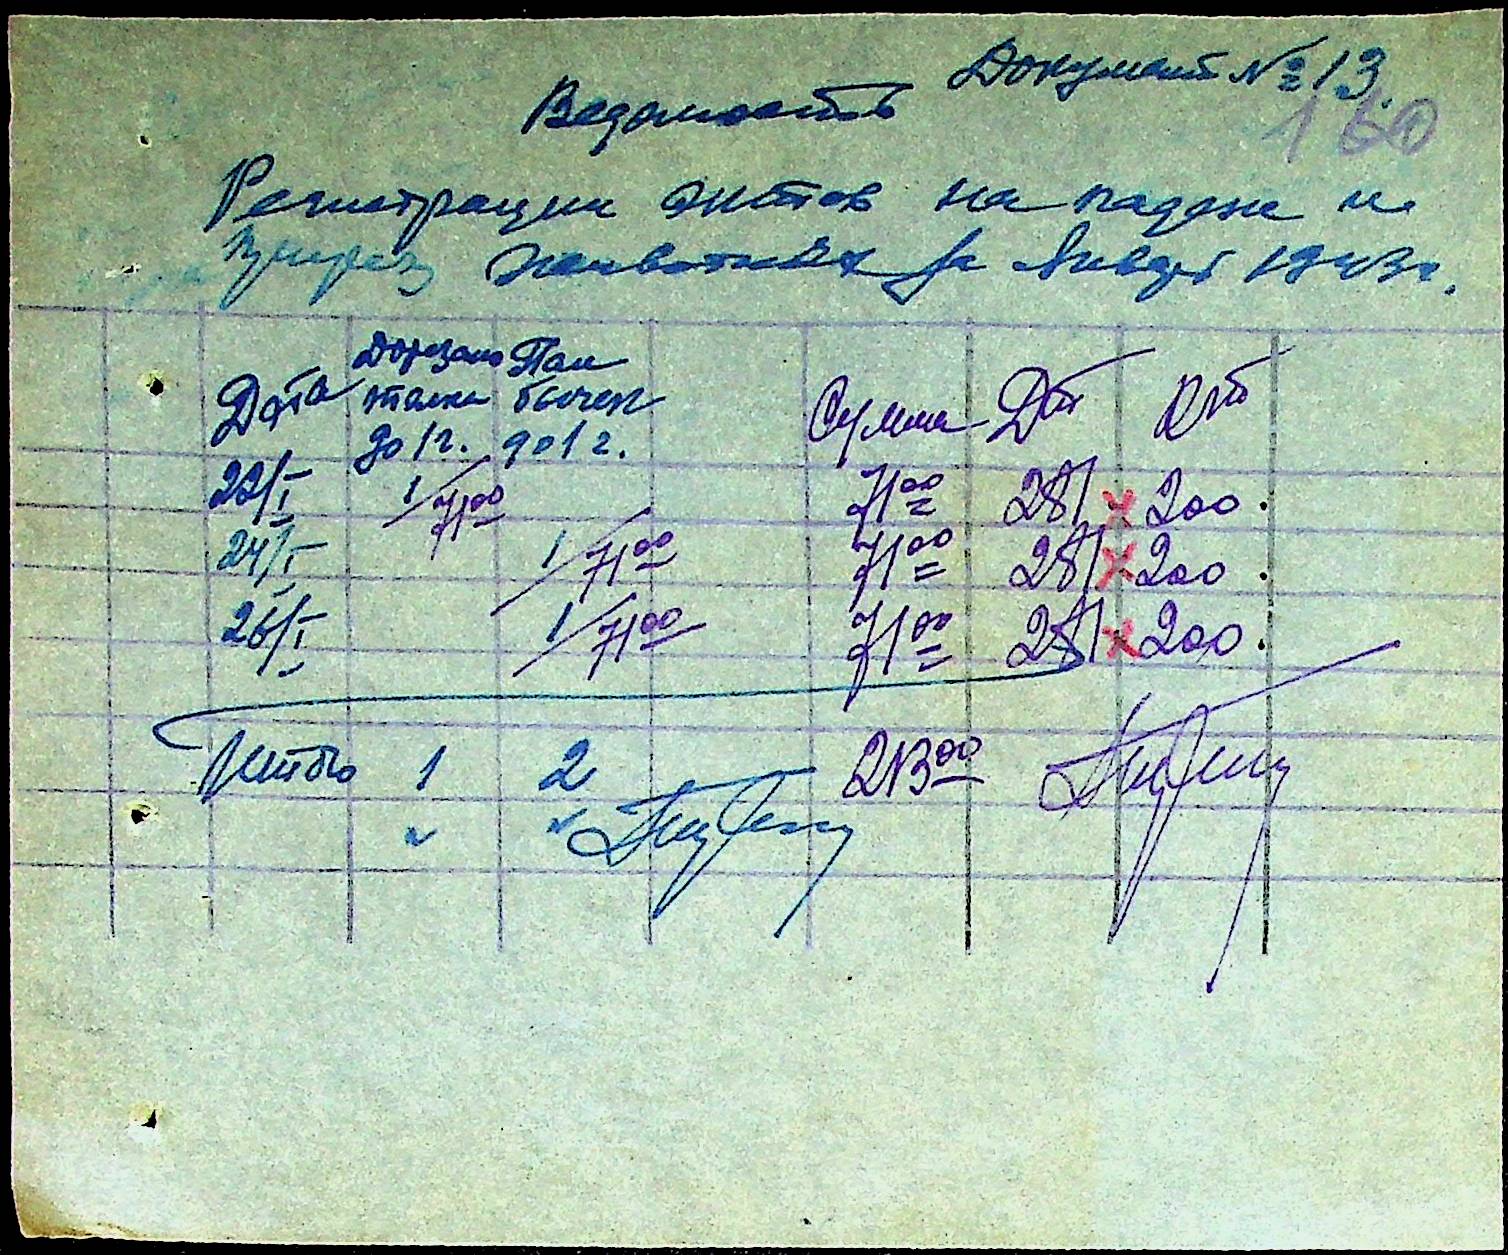 Документ № 13.
160
Ведомость
Регистрации актов на падеж и
прирез животных за Январь 1943 г.
Дата Дорезано телки до 1 г. Пал бычек до 1 г. Сумма Дт Кт
22/I 1/71 00 71 00 281 × 200.
24/I 1/71 00 71 00 281 × 200.
26/I 1/71 00 71 00 281 × 200.
Итого 1 2 213 00